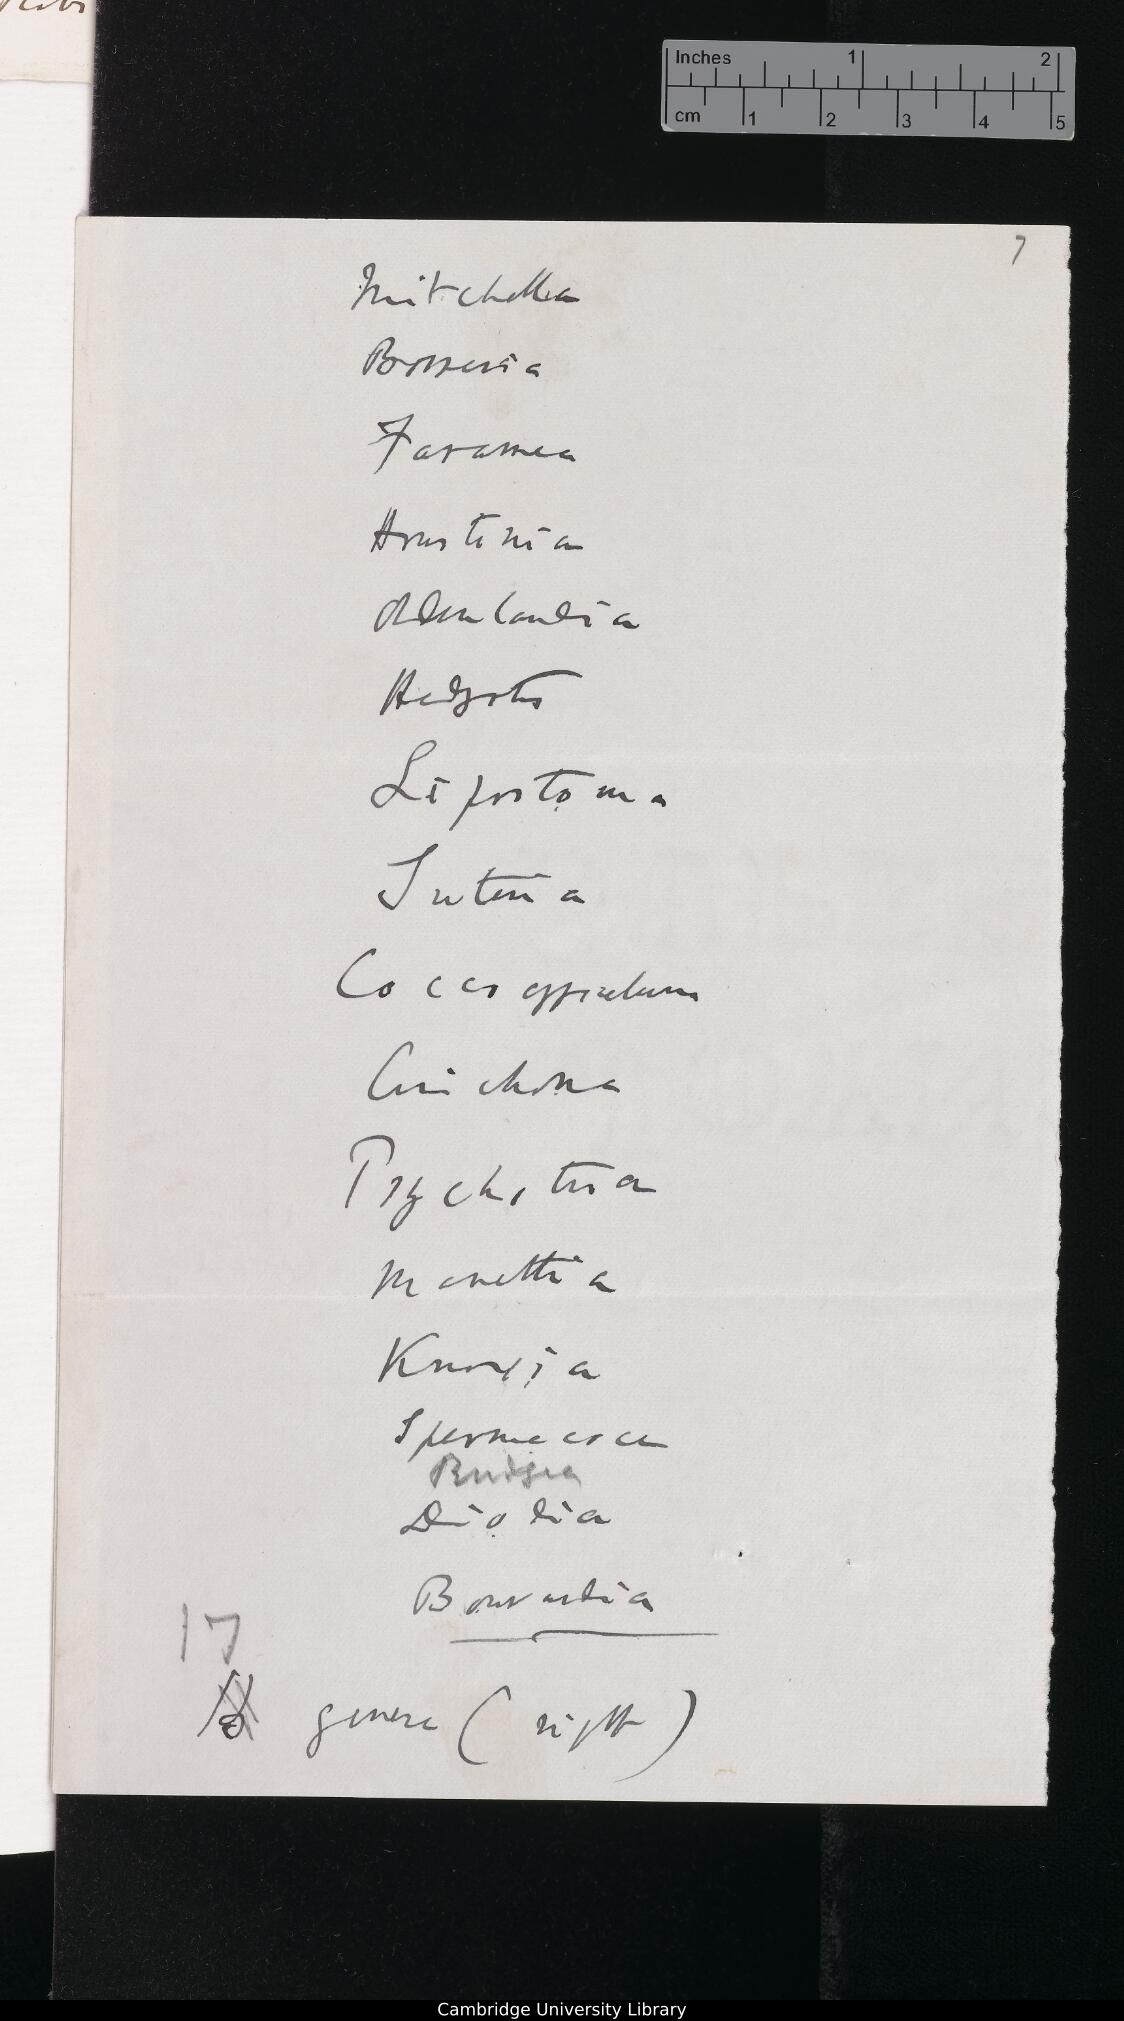 Inches 1 2
cm 1 2 3 4 5
7
Mitchella
Borreria
Faramea
Houstonia
Oldenlandia
Hedyotis
Lipostoma
Suteria
Coccocypselum
Cinchona
Psychotria
Manettia
Knoxia
Spermacoce
Rudgea
Diodia
Bouvardia
17
genera (right)
Cambridge University Library